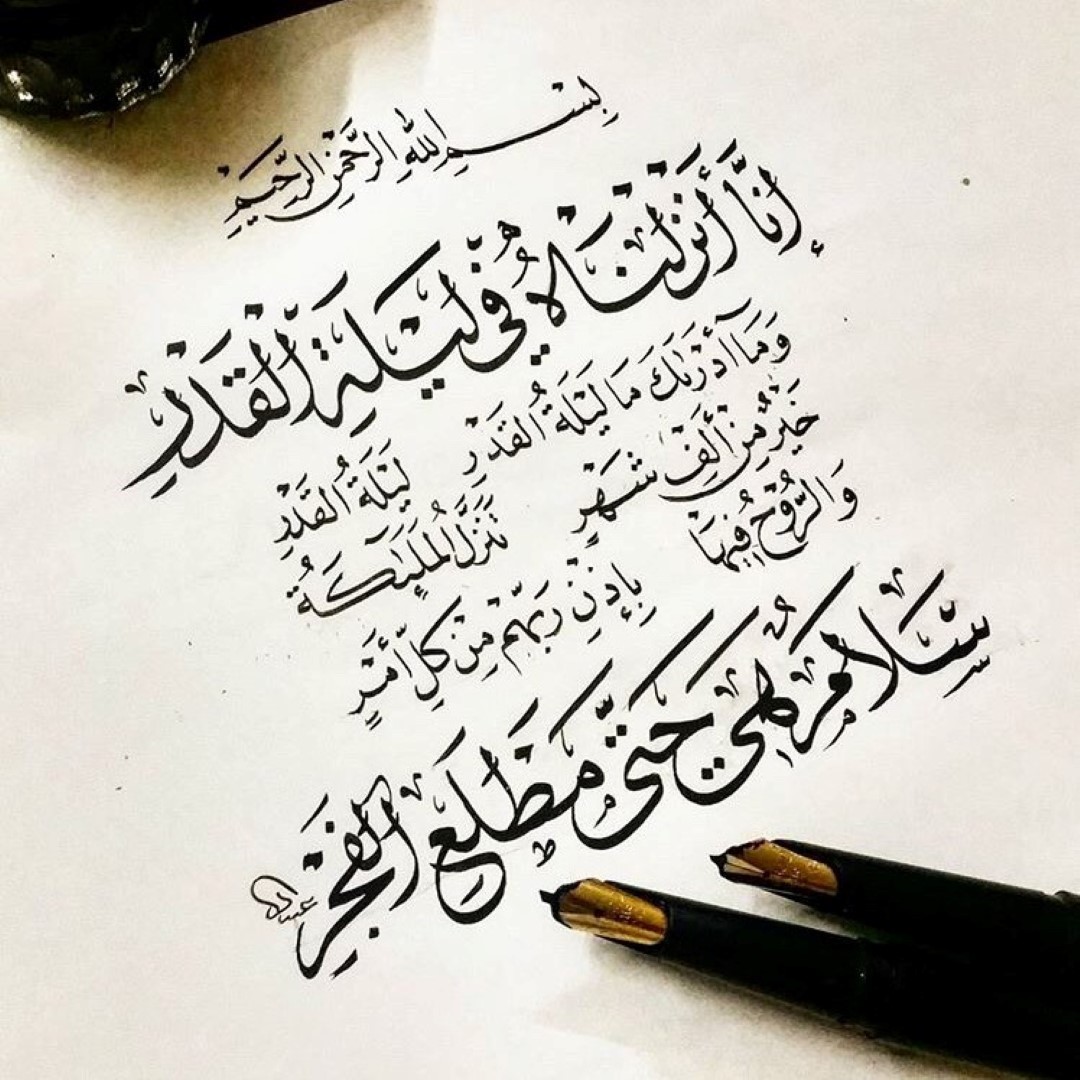 بِسْمِ اللهِ الرَّحْمٰنِ الرَّحِيمِ
إِنَّا أَنزَلْنَاهُ فِي لَيْلَةِ الْقَدْرِ
وَمَآ أَدْرَىٰكَ مَا لَيْلَةُ الْقَدْرِ لَيْلَةُ الْقَدْرِ
خَيْرٌ مِّنْ أَلْفِ شَهْرٍ تَنَزَّلُ الْمَلَٰٓئِكَةُ
وَالرُّوحُ فِيهَا بِإِذْنِ رَبِّهِم مِّن كُلِّ أَمْرٍ
سَلَامٌ هِيَ حَتَّىٰ مَطْلَعِ الْفَجْرِ